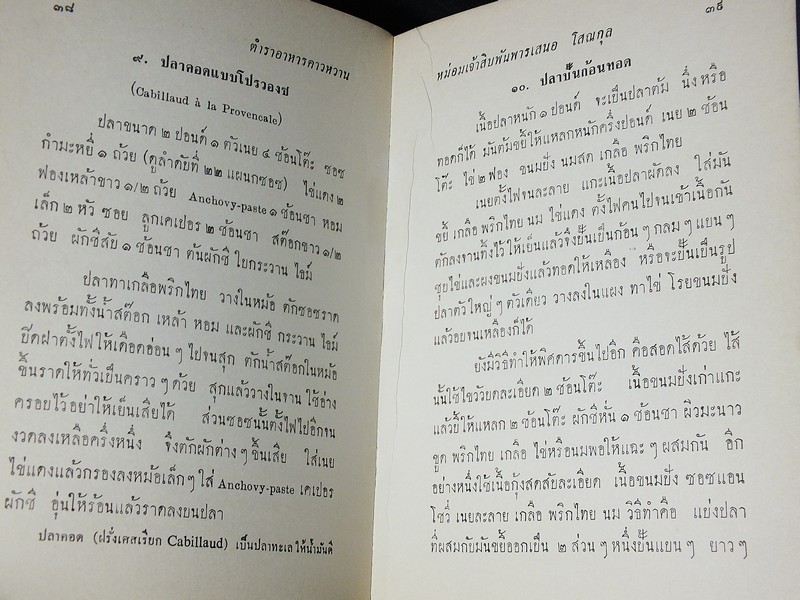 ๓๘
ตำราอาหารคาวหวาน
๙. ปลาคอดแบบโปรวองซ
(Cabillaud à la Provencale)
ปลาขนาด ๒ ปอนด์ ๑ ตัวเนย ๔ ช้อนโต๊ะ ซอซ
กำมะหยี่ ๑ ถ้วย (ดูลำดับที่ ๒๒ แผนกซอซ) ไข่แดง ๒
ฟองเหล้าขาว ๑/๒ ถ้วย Anchovy-paste ๑ ช้อนชา หอม
เล็ก ๒ หัว ซอย ลูกเคเปอร ๒ ช้อนชา สต๊อกขาว ๑/๒
ถ้วย ผักชีสับ ๑ ช้อนชา ต้นผักชี ใบกระวาน ไธม์
ปลาทาเกลือพริกไทย วางในหม้อ ตักซอซราด
ลงพร้อมทั้งน้ำสต๊อก เหล้า หอม และผักชี กระวาน ไธม์
ปิดฝาตั้งไฟให้เดือดอ่อน ๆ ไปจนสุก ตักน้ำสต๊อกในหม้อ
ขึ้นราดให้ทั่วเป็นคราว ๆ ด้วย สุกแล้ววางในจาน ใช้อ่าง
ครอบไว้อย่าให้เย็นเสียได้ ส่วนซอซนั้นตั้งไฟไปอีกจน
งวดลงเหลือครึ่งหนึ่ง จึงตักผักต่าง ๆ ขึ้นเสีย ใส่เนย
ไข่แดงแล้วกรองลงหม้อเล็ก ๆ ใส่ Anchovy-paste เคเปอร
ผักชี อุ่นให้ร้อนแล้วราดลงบนปลา
ปลาคอด (ฝรั่งเศสเรียก Cabillaud) เป็นปลาทะเล ให้น้ำมันดี
๓๙
หม่อมเจ้าสิบพันพารเสนอ โสณกุล
๑๐. ปลาปั้นก้อนทอด
เนื้อปลาหนัก ๑ ปอนด์ จะเป็นปลาต้ม นึ่ง หรือ
ทอดก็ได้ มันต้มขยี้ให้แหลกหนักครึ่งปอนด์ เนย ๒ ช้อน
โต๊ะ ไข่ ๒ ฟอง ขนมปัง นมสด เกลือ พริกไทย
เนยตั้งไฟจนละลาย แกะเนื้อปลาผัดลง ใส่มัน
ขยี้ เกลือ พริกไทย นม ไข่แดง ตั้งไฟคนไปจนเข้าเนื้อกัน
ตักลงจานทิ้งไว้ ให้เย็นแล้วจึงปั้นเป็นก้อน ๆ กลม ๆ แบน ๆ
ชุบไข่และผงขนมปังแล้วทอดให้เหลือง หรือจะปั้นเป็นรูป
ปลาตัวใหญ่ ๆ ตัวเดียว วางลงในแผง ทาไข่ โรยขนมปัง
แล้วอบจนเหลืองก็ได้
ยังมีวิธีทำให้พิศดารขึ้นไปอีก คือสอดไส้ด้วย ไส้
นั้นใช้ไขวัวบดละเอียด ๒ ช้อนโต๊ะ เนื้อขนมปังเก่าแกะ
แล้วขยี้ให้แหลก ๒ ช้อนโต๊ะ ผักชีหั่น ๑ ช้อนชา ผิวมะนาว
ขูด พริกไทย เกลือ ไข่หรือนมพอให้แฉะ ๆ ผสมกัน อีก
อย่างหนึ่งใช้เนื้อกุ้งสดสับละเอียด เนื้อขนมปัง ซอซแอน
โชวี่ เนยละลาย เกลือ พริกไทย นม วิธีทำคือ แบ่งปลา
ที่ผสมกับมันขยี้ออกเป็น ๒ ส่วน ๆ หนึ่งปั้นแบน ๆ ยาว ๆ